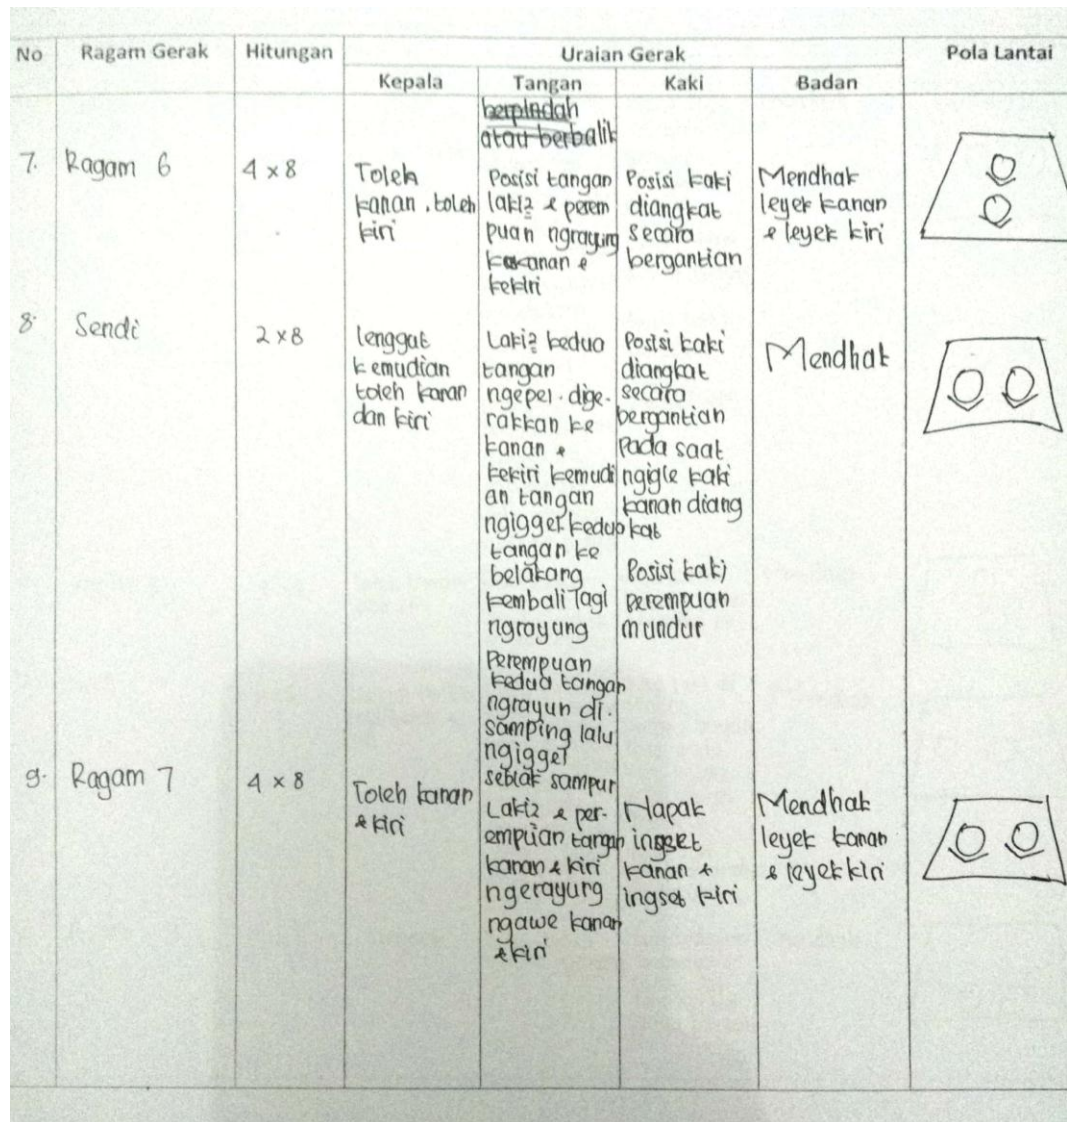 No Ragam Gerak Hitungan Uraian Gerak Pola Lantai
Kepala Tangan Kaki Badan
berpindah
atau berbalik
7. Ragam 6
4 x 8
Toleh
kanan, toleh
kiri
Posisi tangan
laki2 & perem
puan ngrayung
kekanan &
kekiri
Posisi kaki
diangkat
secara
bergantian
Mendhak
leyek kanan
& leyek kiri
8. Sendi
2 x 8
lenggut
kemudian
toleh kanan
dan kiri
Laki2 kedua
tangan
ngepel. dige-
rakkan ke
kanan &
kekiri kemudi
an tangan
ngiggel kedua
tangan ke
belakang
kembali lagi
ngrayung
Perempuan
kedua tangan
ngrayun di-
samping lalu
ngiggel
seblak sampur
Posisi kaki
diangkat
secara
bergantian
Pada saat
ngigle kaki
kanan diang
kat
Posisi kaki
perempuan
mundur
Mendhak
9. Ragam 7
4 x 8
Toleh kanan
& kiri
Laki2 & per-
empuan tangan
kanan & kiri
ngerayung
ngawe kanan
& kiri
Napak
ingset
kanan &
ingset kiri
Mendhak
leyek kanan
& leyek kiri